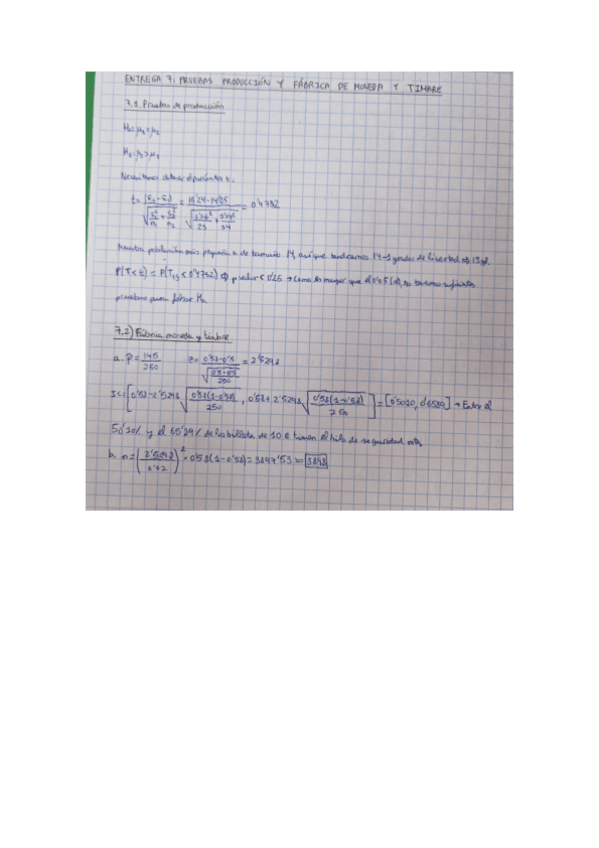 ENTREGA 7: PRUEBAS PRODUCCIÓN Y FÁBRICA DE MONEDA Y TIMBRE
7.1. Pruebas de producción
H₀: μ₁ = μ₂
Necesitamos obtener
t = = = 0'4752
Nuestra población más pequeña es de tamaño 14, así que tendremos 14-1 grados de libertad ⇒ 13 gl.
P(T<t) = P(T₁₃ < 0'4752) ⇒ p valor < 0'25 → Como es mayor que el 0'05 (α), no tenemos suficientes
pruebas para
7.2) Fábrica moneda y timbre
a. p̂ = 145/250 z = (0'58-0'5)/√(0'5·0'5/250) = 2'5298
IC = [0'58-2'5298 √(0'58(1-0'58)/250), 0'58+2'5298 √(0'58(1-0'58)/250)] = [0'5010, 0'6589] → Entre el
50'10% y el de los billetes de 10 € tienen el hilo de seguridad
b. n = (2'5298/0'02)² · 0'58(1-0'58) = 3897'53 ≈ 3898